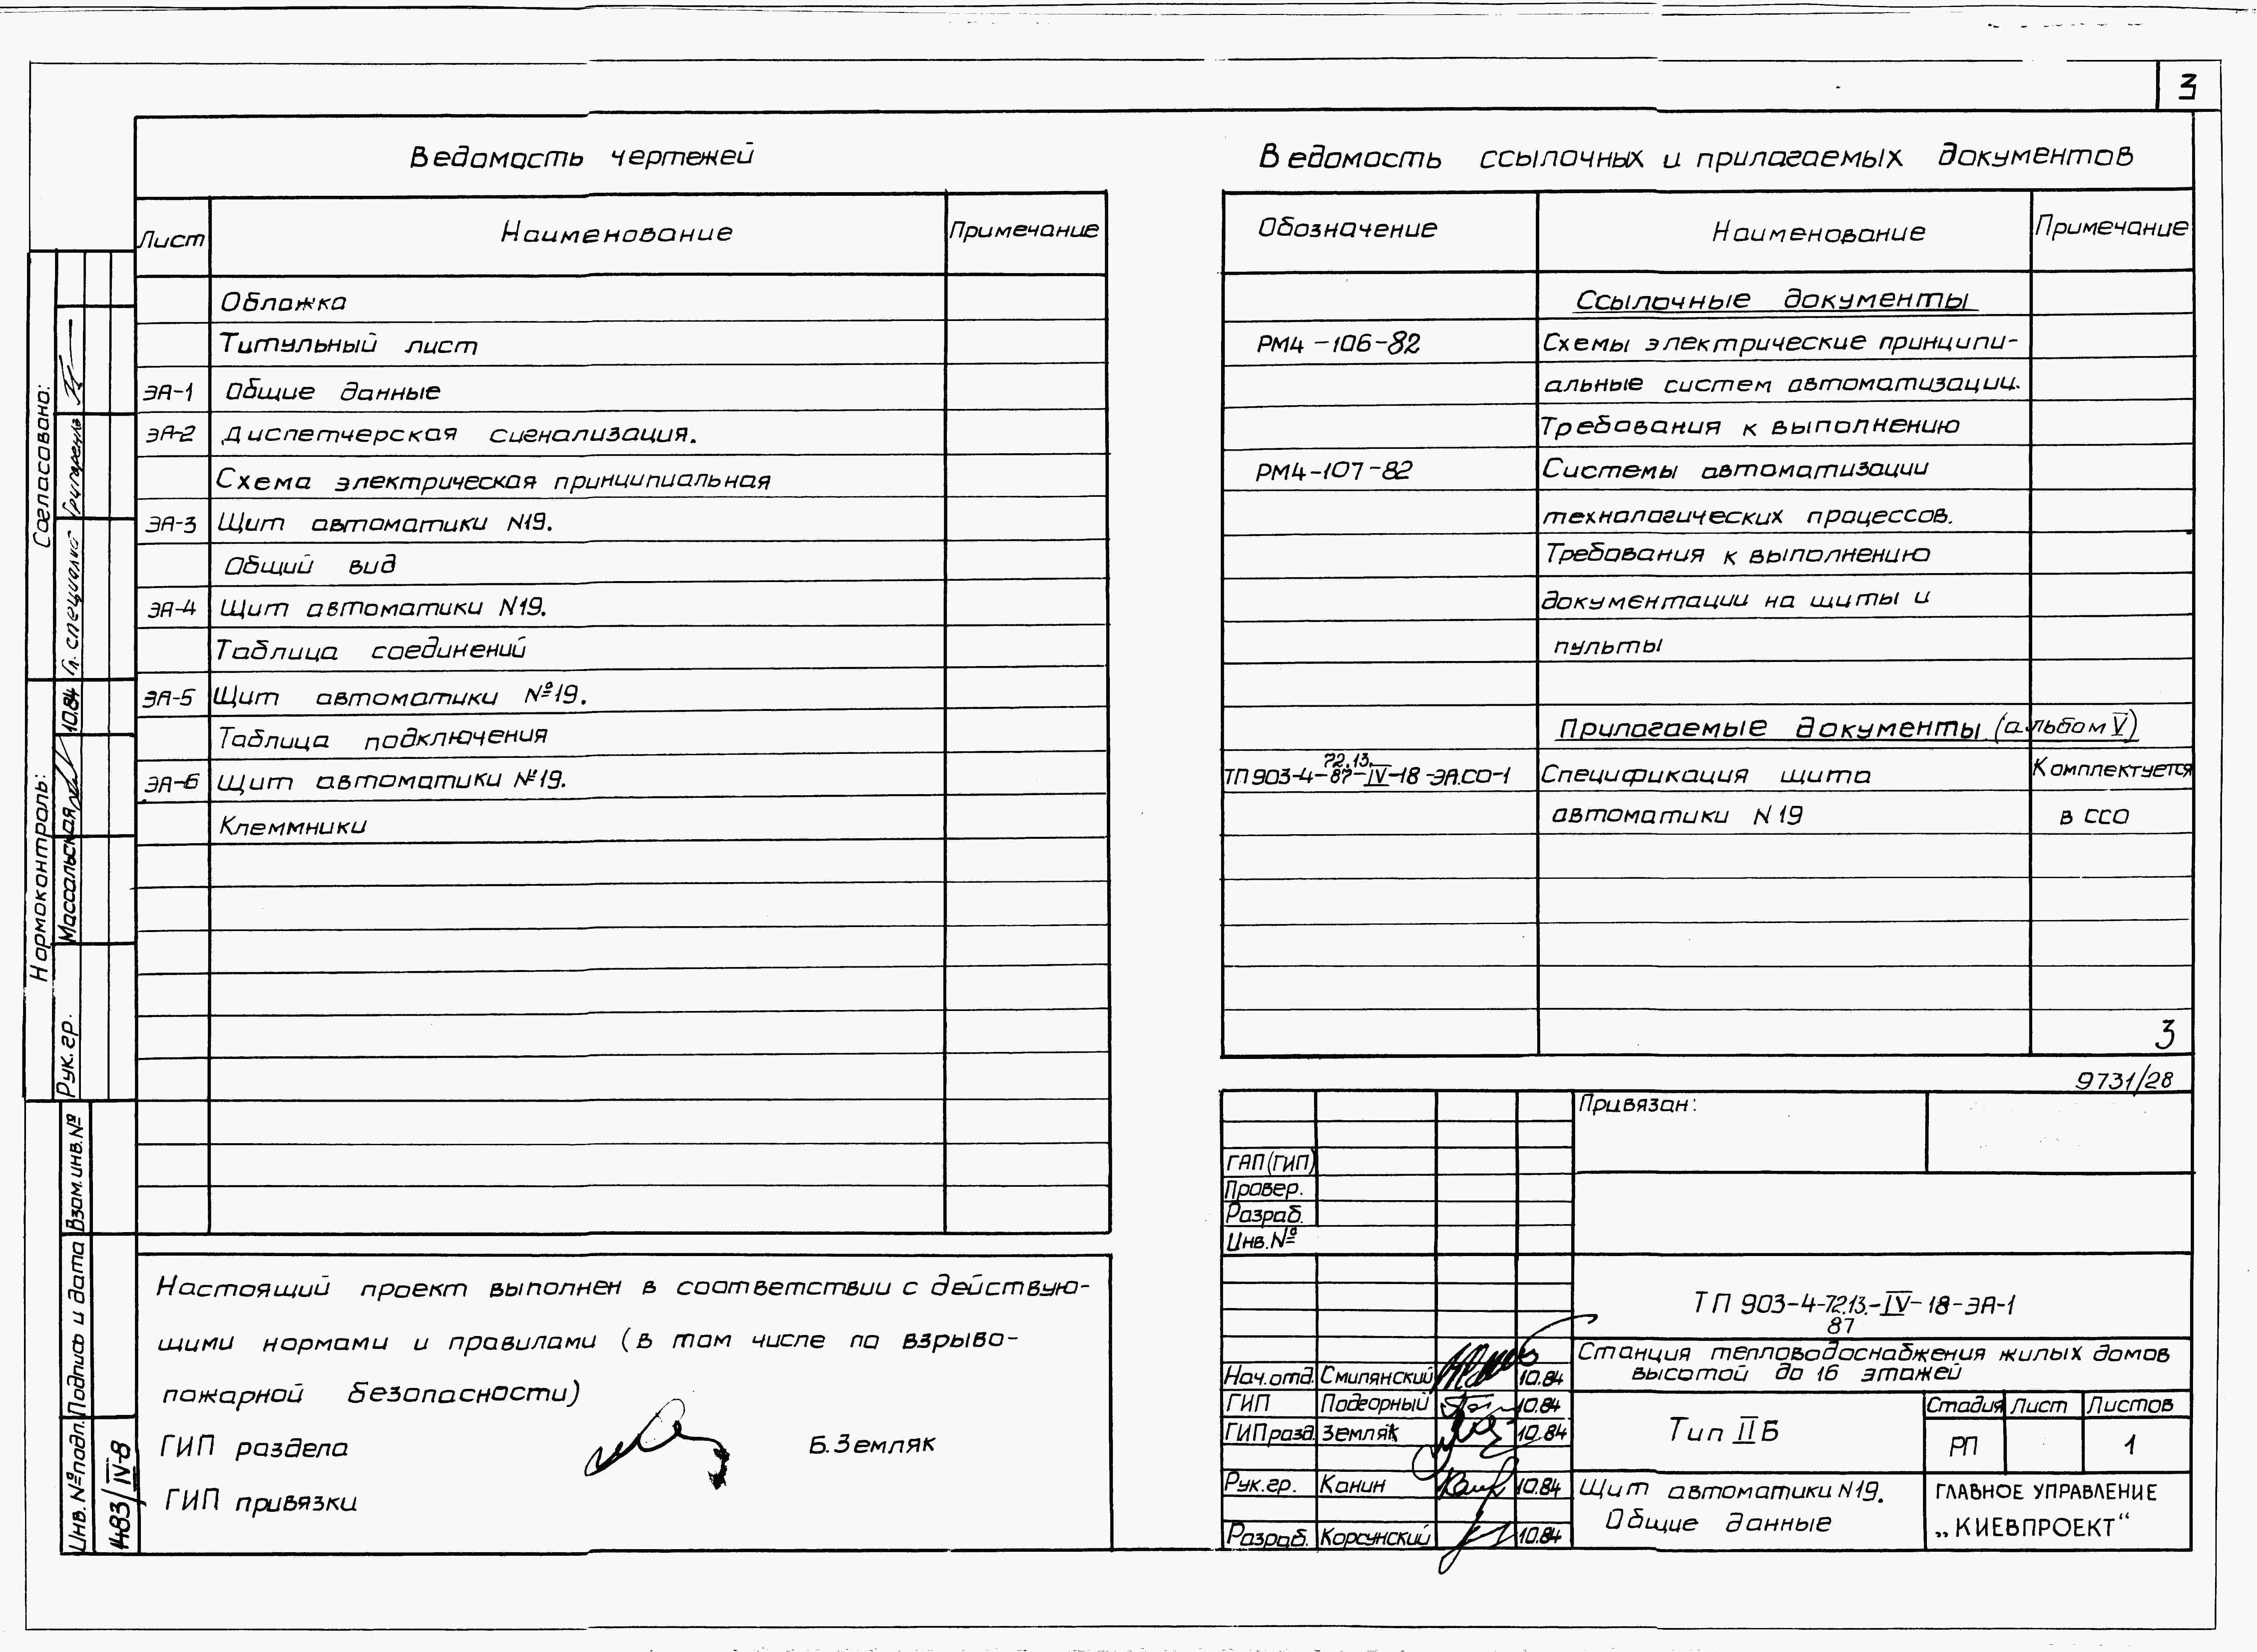 3
Ведомость чертежей
Лист Наименование Примечание
Обложка
Титульный лист
ЭА-1 Общие данные
ЭА-2 Диспетчерская сигнализация.
Схема электрическая принципиальная
ЭА-3 Щит автоматики N19.
Общий вид
ЭА-4 Щит автоматики N19.
Таблица соединений
ЭА-5 Щит автоматики №19.
Таблица подключения
ЭА-6 Щит автоматики №19.
Клеммники
Ведомость ссылочных и прилагаемых документов
Обозначение Наименование Примечание
Ссылочные документы
РМ4-106-82 Схемы электрические принципи-
альные систем автоматизации.
Требования к выполнению
РМ4-107-82 Системы автоматизации
технологических процессов.
Требования к выполнению
документации на щиты и
пульты
Прилагаемые документы (альбом V)
72.13.
ТП903-4-87-IV-18-ЭА.СО-1 Спецификация щита Комплектуется
автоматики N19 в ССО
3
9731/28
Настоящий проект выполнен в соответствии с действую-
щими нормами и правилами (в том числе по взрыво-
пожарной безопасности)
ГИП раздела Б.Земляк
ГИП привязки
Привязан:
ГАП(ГИП)
Провер.
Разраб.
Инв.№
ТП 903-4-72.13.-IV-18-ЭА-1
87
Станция тепловодоснабжения жилых домов
высотой до 16 этажей
Нач.отд. Смилянский 10.84
ГИП Подгорный 10.84
ГИП разд. Земляк 10.84
Рук.гр. Канин 10.84
Разраб. Корсунский 10.84
Тип IIБ
Стадия Лист Листов
РП 1
Щит автоматики N19.
Общие данные
ГЛАВНОЕ УПРАВЛЕНИЕ
„КИЕВПРОЕКТ“
Согласовано:
Гл. специалист Григоренко
Нормоконтроль:
Рук. гр. Массальская 10.84
Взам.инв.№
Подпись и дата
Инв.№подл.
1483/IV-8